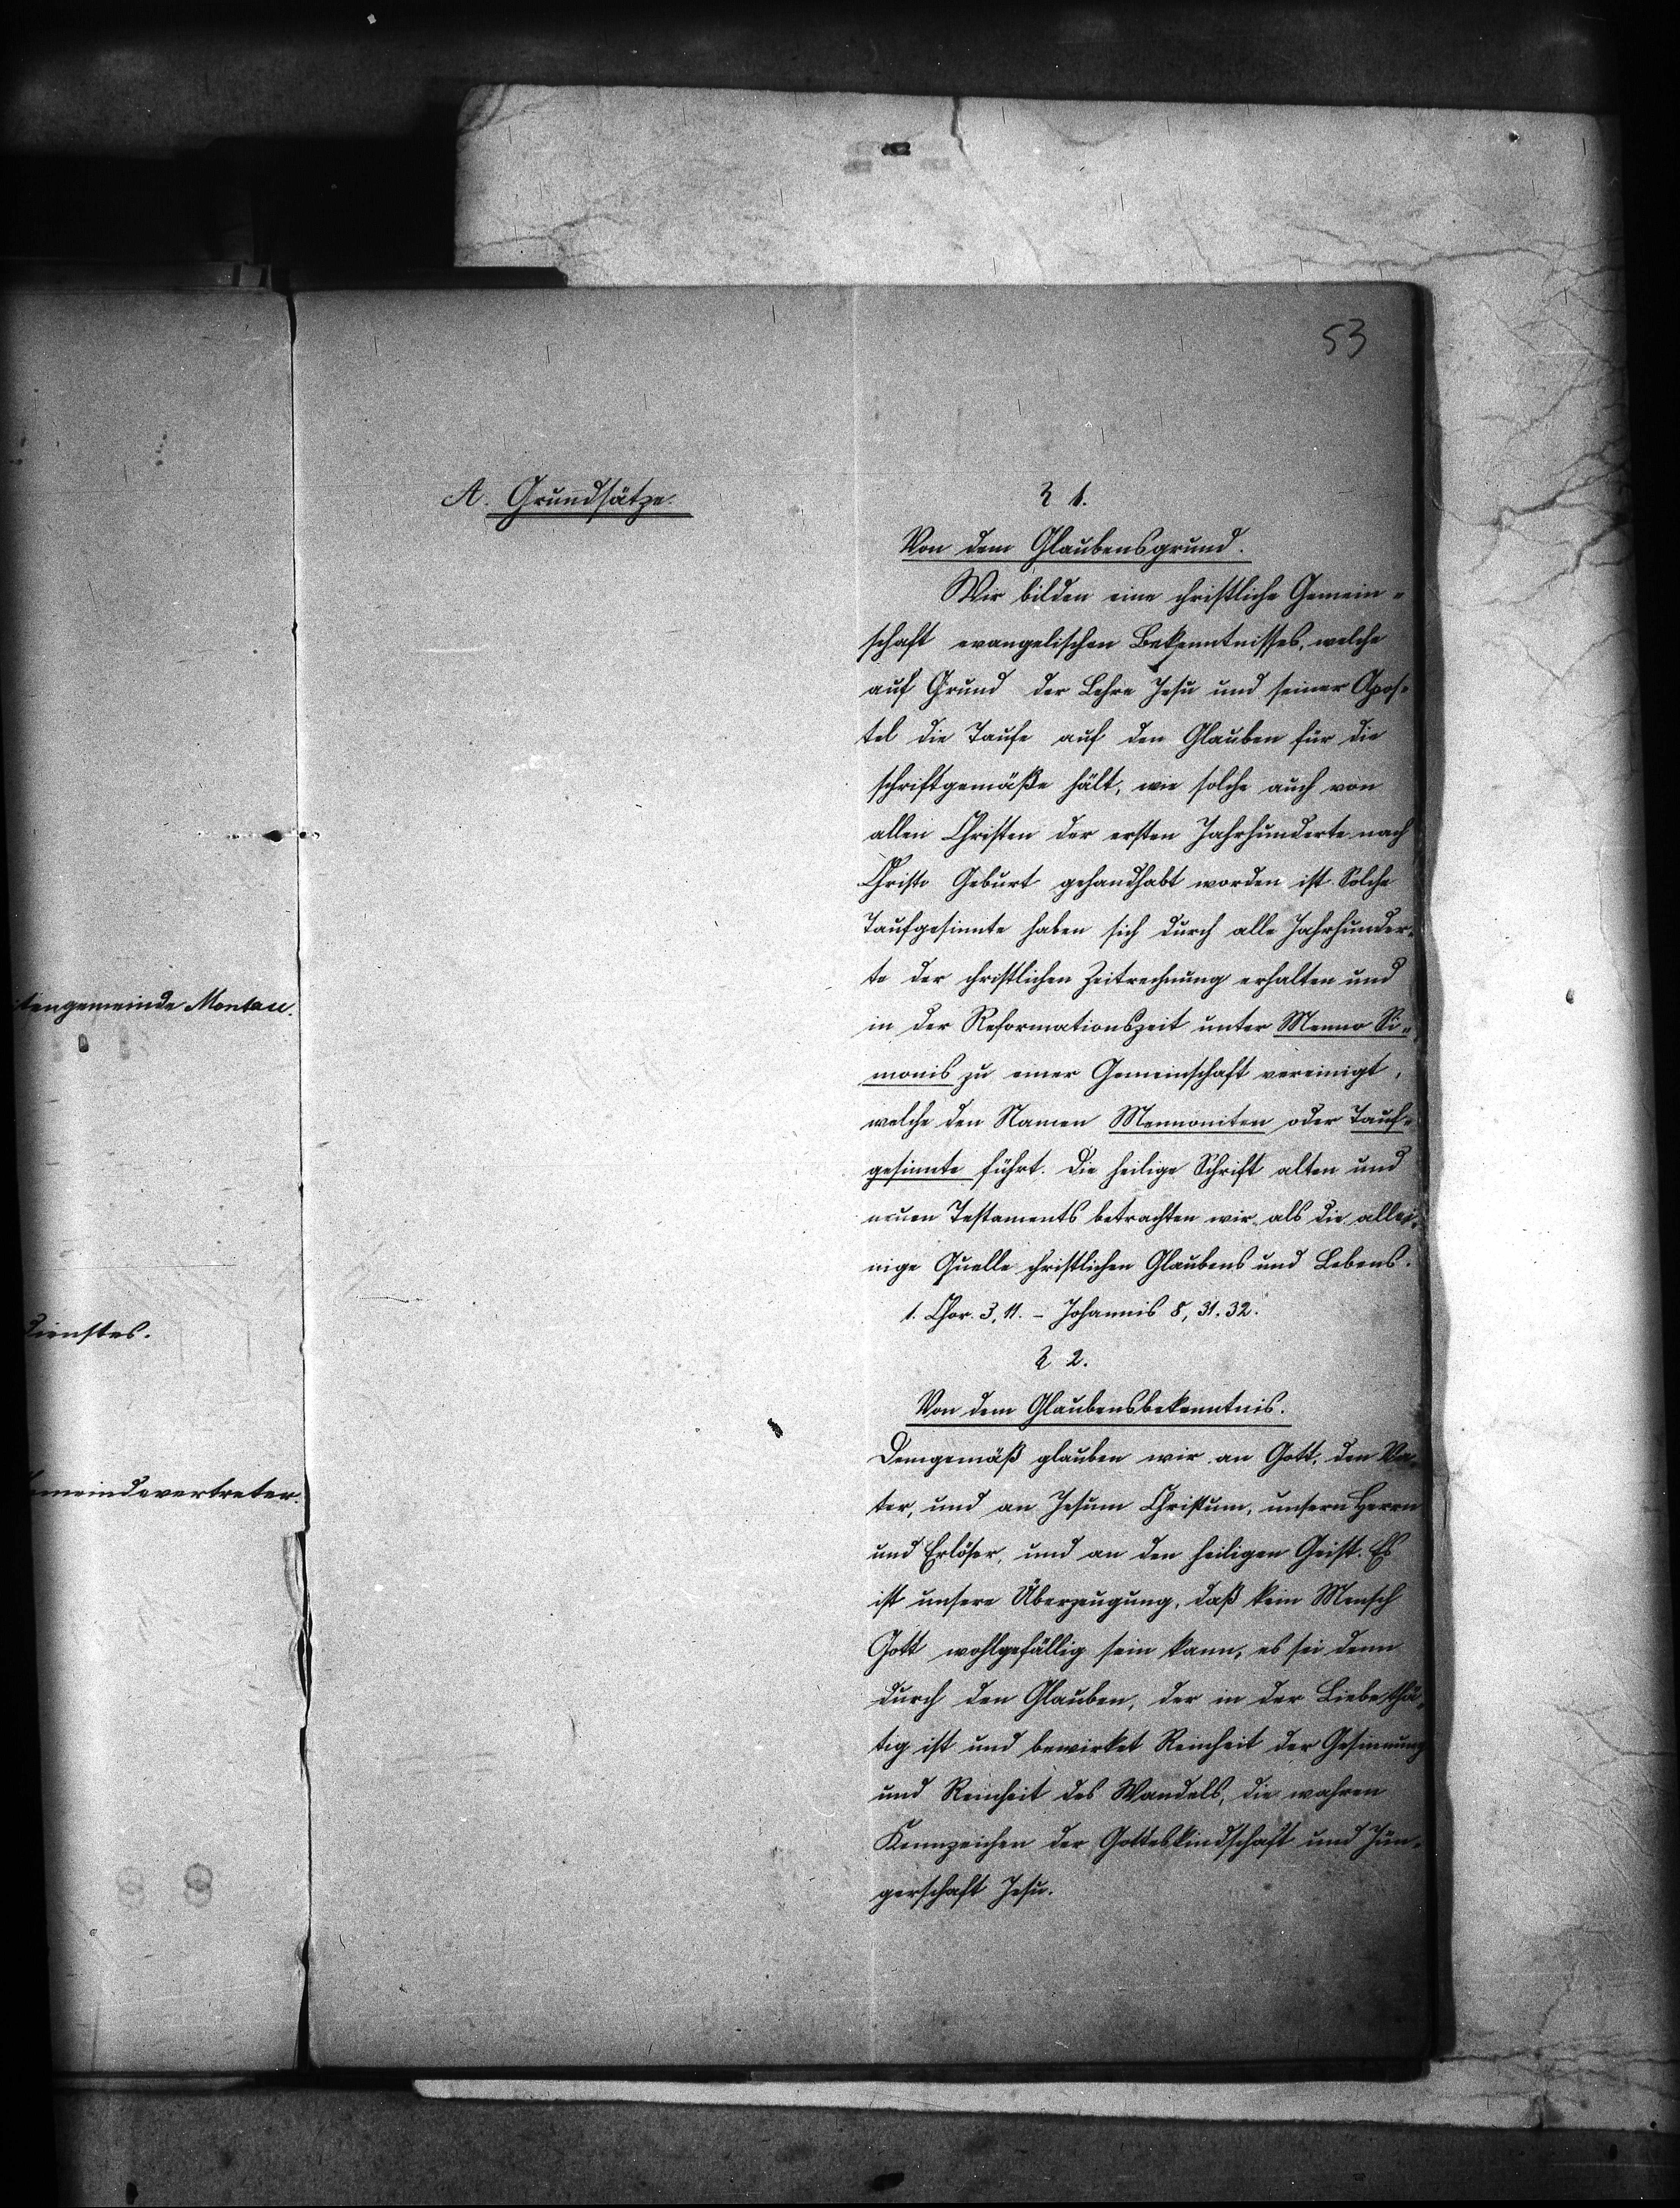 53
A. Grundsätze.
§ 1.
Von dem Glaubensgrund.
Wir bilden eine christliche Gemein=
schaft evangelischen Bekenntnisses, welche
auf Grund der Lehre Jesu und seiner Apos=
tel die Taufe auf den Glauben für die
schriftgemäße hält, wie solche auch von
allen Christen der ersten Jahrhunderte nach
Christi Geburt gehandhabt worden ist. Solche
Taufgesinnte haben sich durch alle Jahrhunder=
te der christlichen Zeitrechnung erhalten und
in der Reformationszeit unter Menno Si=
monis zu einer Gemeinschaft vereinigt,
welche den Namen Mennoniten oder Tauf=
gesinnte führt. Die heilige Schrift alten und
neuen Testaments betrachten wir als die allei=
nige Quelle christlichen Glaubens und Lebens.
1. Chor. 3, 11. – Johannis 8, 31. 32.
§ 2.
Von dem Glaubensbekenntnis.
Demgemäß glauben wir an Gott, den Va=
ter, und an Jesum Christum, unsern Herrn
und Erlöser, und an den heiligen Geist. Es
ist unsere Überzeugung, daß kein Mensch
Gott wohlgefällig sein kann, es sei denn
durch den Glauben, der in der Liebe thä=
tig ist und bewirket Reinheit der Gesinnung
und Reinheit des Wandels, die wahren
Kennzeichen der Gotteskindschaft und Jün=
gerschaft Jesu.
itengemeinde Montau.
dienstes.
emeindevertreter.